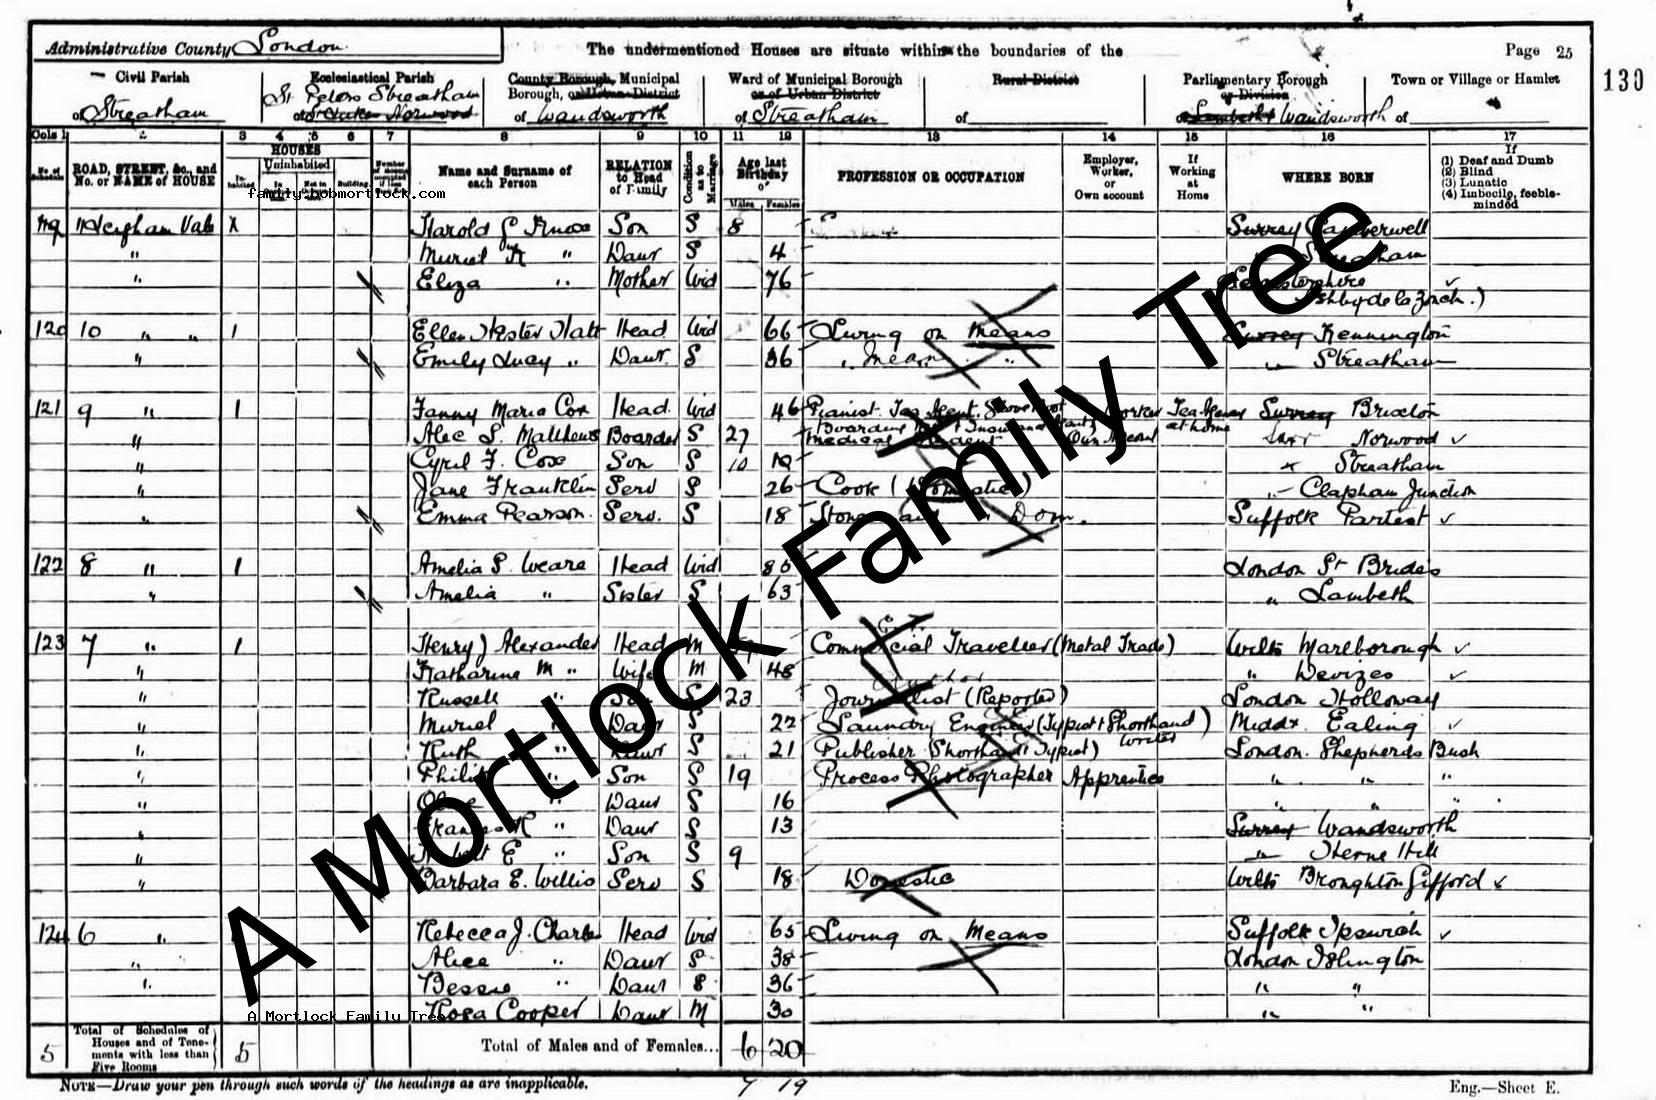 Administrative County London.
The undermentioned Houses are situate within the boundaries of the
Page 25
130
Civil Parish
of Streatham
Ecclesiastical Parish
St Peters Streatham
County Borough, Municipal
Borough, or Urban District
of Wandsworth
Ward of Municipal Borough
or of Urban District
of Streatham
Rural District
of
Parliamentary Borough
or Division
of Wandsworth
Town or Village or Hamlet
of
Cols 1 2 3 4 5 6 7 8 9 10 11 12 13 14 15 16 17
ROAD, STREET, &c., and
No. or NAME of HOUSE
HOUSES
Uninhabited
Building
Name and Surname of
each Person
RELATION
to Head
of Family
Condition
as to
Marriage
Age last
Birthday
of
Males Females
PROFESSION OR OCCUPATION
Employer,
Worker,
or
Own account
If
Working
at
Home
WHERE BORN
If
(1) Deaf and Dumb
(2) Blind
(3) Lunatic
(4) Imbecile, feeble-
minded
family.bobmortlock.com
119 Vale X Harold Son S 8 Surrey Camberwell
" Muriel " Daur S 4 Streatham
" Eliza " Mother Wid 76 Leicestershire
Ashby de la Zouch.)
120 10 " " 1 Ellen Hester Head Wid 66 Living on Means Surrey Kennington
" Emily Lucy " Daur. S 36 " Means " Streatham
121 9 " 1 Fanny Maria Cox Head. Wid 46 Pianist. Surrey Brixton
" Alec S. Matthews Boarder S 27 Medical Student Own Account at home Norwood
" Cyril F. Cox Son S 10 Streatham
" Jane Franklin Serv S 26 Cook (Domestic) Clapham Junction
" Emma Pearson. Serv. S 18 Dom. Suffolk
122 8 " 1 Amelia S. Weare Head Wid London St Brides
" Amelia " Sister S 63 " Lambeth
123 7 " 1 Henry J Alexander Head M Commercial Traveller (Metal Trade) Wilts Marlborough
" Katharine M " Wife M 48 " Devizes
" Russell " Son S 23 Journalist (Reporter) London Holloway
" Muriel " Daur S 22 Laundry Engineer (Typist & Shorthand Writer) Middx. Ealing
" Ruth " Daur S 21 Publisher (Shorthand Typist) London. Shepherds Bush
" Philip " Son S 19 Process Photographer Apprentice " " "
" Olive " Daur S 16 " " "
" Frances R " Daur S 13 Surrey Wandsworth
" Hubert E " Son S 9 Herne Hill
" Barbara E. Willis Serv S 18 Domestic Wilts Broughton Gifford
124 6 " Rebecca J. Charles Head Wid 65 Living on Means Suffolk Ipswich
" Alice " Daur S 38 London Islington
" Bessie " Daur S 36 " "
Rosa Cooper Daur M 30 " "
A Mortlock Family Tree
A Mortlock Family Tree
5
Total of Schedules of
Houses and of Tene-
ments with less than
Five Rooms
5
Total of Males and of Females...
6 20
7 19
NOTE—Draw your pen through such words of the headings as are inapplicable.
Eng.—Sheet E.